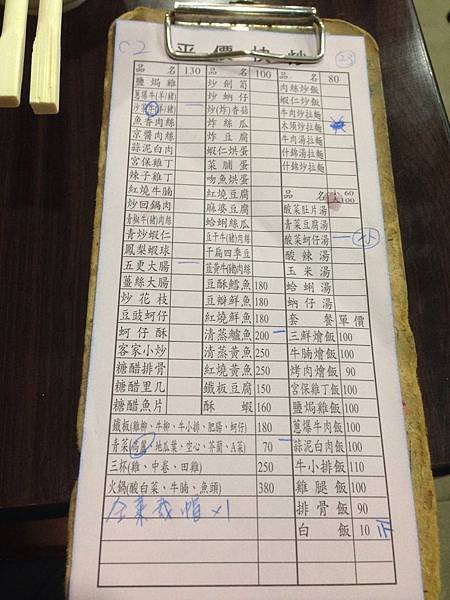 C2 平價快炒 23
品名 130
鹽焗雞
蔥爆牛(羊)(豬)
沙茶牛(羊)(豬)
魚香肉絲
京醬肉絲
蒜泥白肉
宮保雞丁
辣子雞丁
紅燒牛腩
炒回鍋肉
青椒牛(豬)肉絲
青炒蝦仁
鳳梨蝦球
五更大腸
薑絲大腸
炒花枝
豆豉蚵仔
蚵仔酥
客家小炒
糖醋排骨
糖醋里几
糖醋魚片
品名 100
炒劍筍
炒蚋仔
炒(炸)香菇
炸絲瓜
炸豆腐
蝦仁烘蛋
菜脯蛋
吻魚烘蛋
紅燒豆腐
麻婆豆腐
蛤蜊絲瓜
豆干牛(豬)肉絲
干扁四季豆
韭黃牛(豬)肉絲
豆酥鱈魚 180
豆瓣鮮魚 180
紅燒鮮魚 180
清蒸鱸魚 200
清蒸黃魚 250
紅燒黃魚 250
鐵板豆腐 150
酥蝦 160
鐵板(雞柳、牛柳、牛小排、肥腸、蚵仔) 180
青菜(高麗、地瓜葉、空心、芥蘭、A菜) 70
三杯(雞、中卷、田雞) 250
火鍋(酸白菜、牛腩、魚頭) 380
品名 80
肉絲炒飯
蝦仁炒飯
牛肉炒拉麵
木須炒拉麵
牛肉湯拉麵
什錦湯拉麵
什錦炒拉麵
品名 小 60 大 100
酸菜肚片湯
青菜豆腐湯
酸菜蚵仔湯 小
酸辣湯
玉米湯
蛤蜊湯
蚋仔湯
套餐單價
三鮮燴飯 100
牛腩燴飯 100
烤肉燴飯 90
宮保雞丁飯 100
鹽焗雞飯 100
蔥爆牛肉飯 100
蒜泥白肉飯 100
牛小排飯 110
雞腿飯 100
排骨飯 90
白飯 10 正
x1